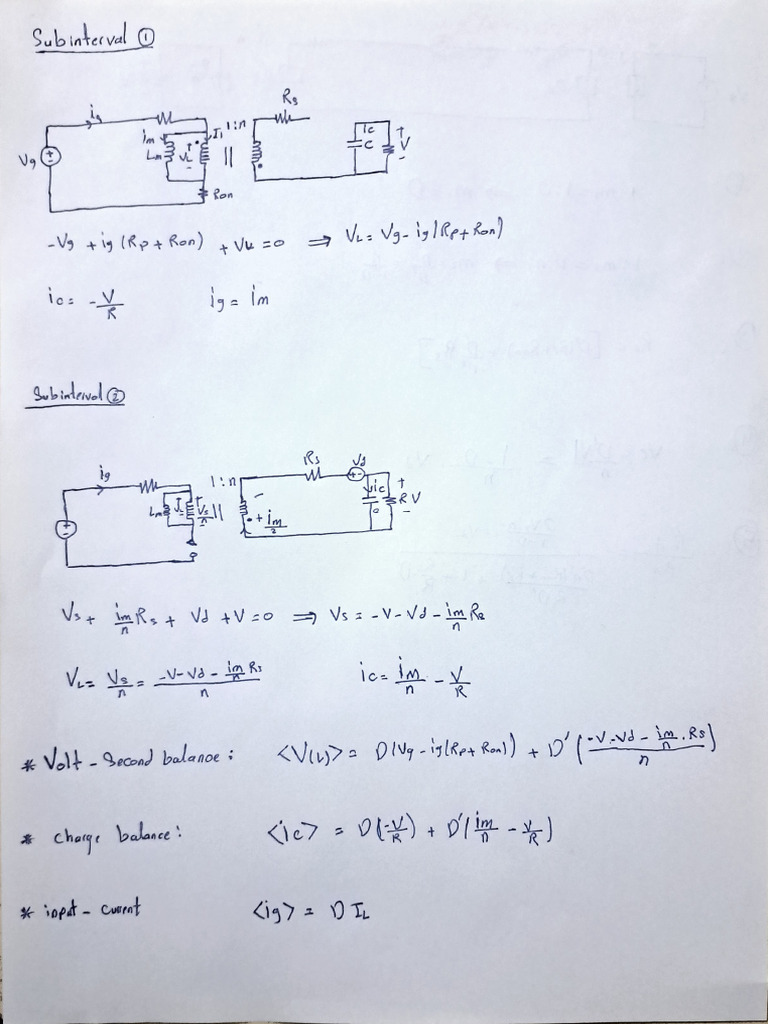 Subinterval ①
Rs
ig
1:n
im
I1
ic
+
Lm
VL
||
C
V
Vg
-
Ron
-Vg + ig(Rp + Ron) + VL = 0 ⇒ VL = Vg - ig(Rp + Ron)
ic = -V/R ig = im
Subinterval ②
ig
1:n
Rs
Vd
+-
ic
+
Lm
Vs/n
||
+ im/2
c
R V
-
Vs + im/n Rs + Vd + V = 0 ⇒ Vs = -V - Vd - im/n Rs
VL = Vs/n = (-V - Vd - im/n Rs)/n ic = im/n - V/R
* Volt - Second balance: <V(L)> = D(Vg - ig(Rp + Ron)) + D'((-V - Vd - im/n . Rs)/n)
* charge balance: <ic> = D(-V/R) + D'(im/n - V/R)
* input - current <ig> = D IL